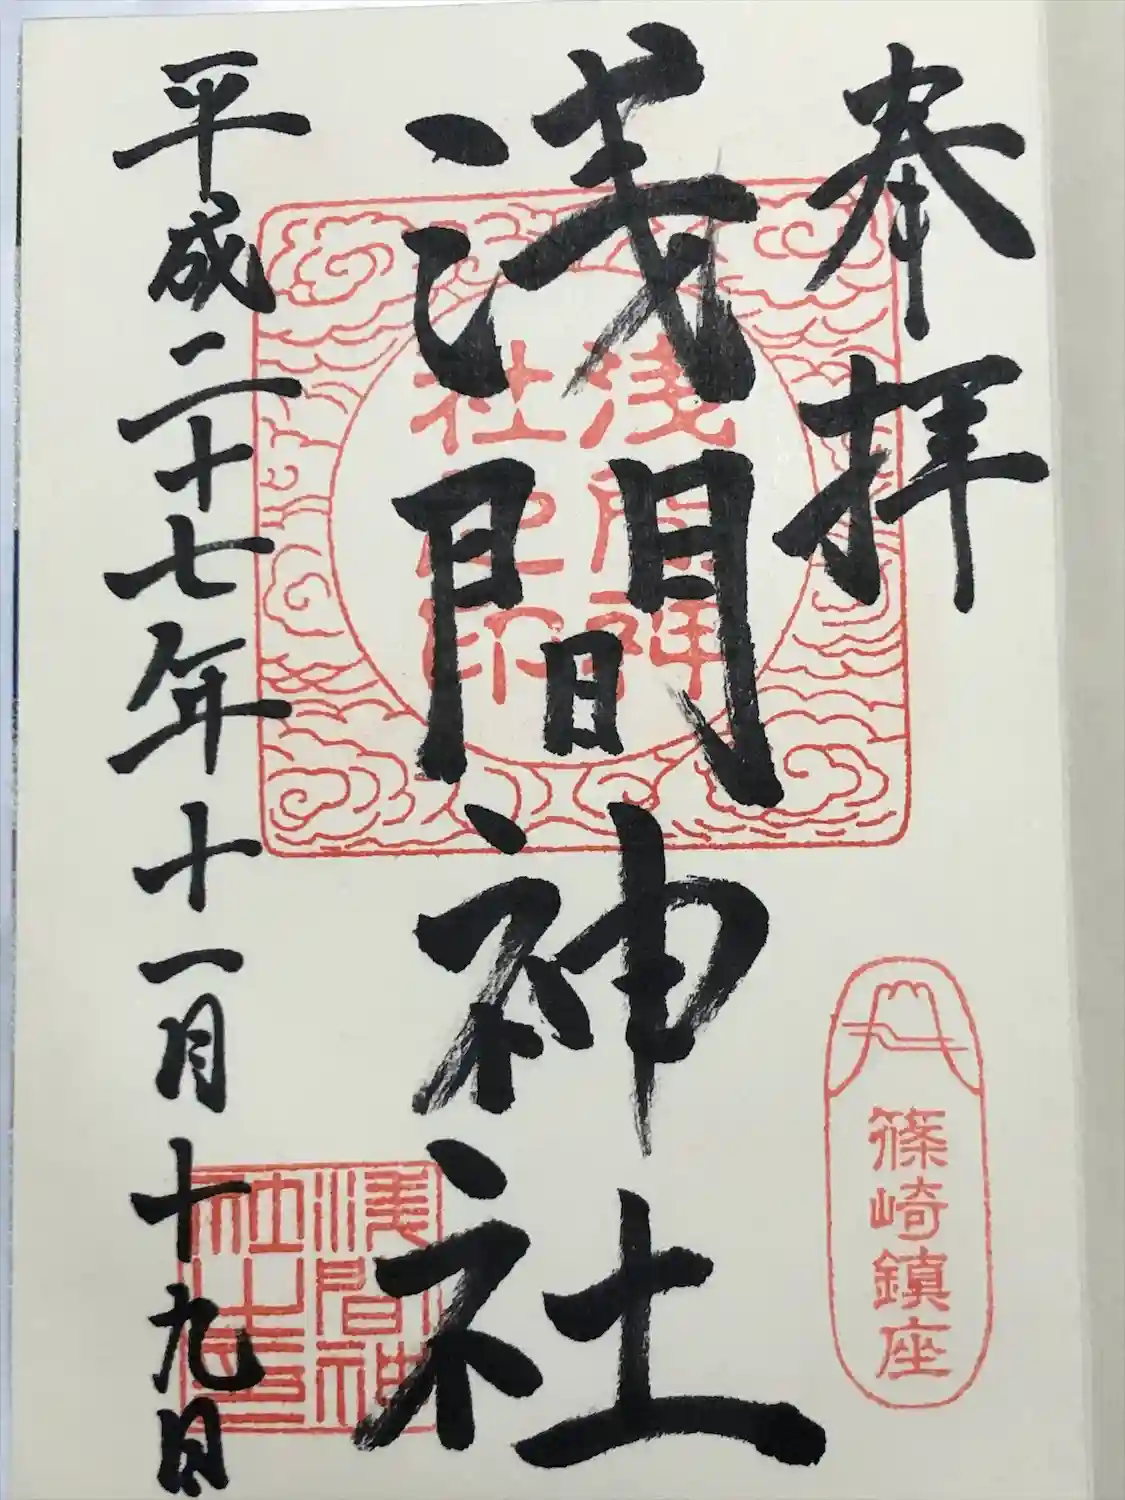 奉拝
篠崎鎮座
浅間神社
浅間神
社之印
浅間神
平成二十七年十一月十九日